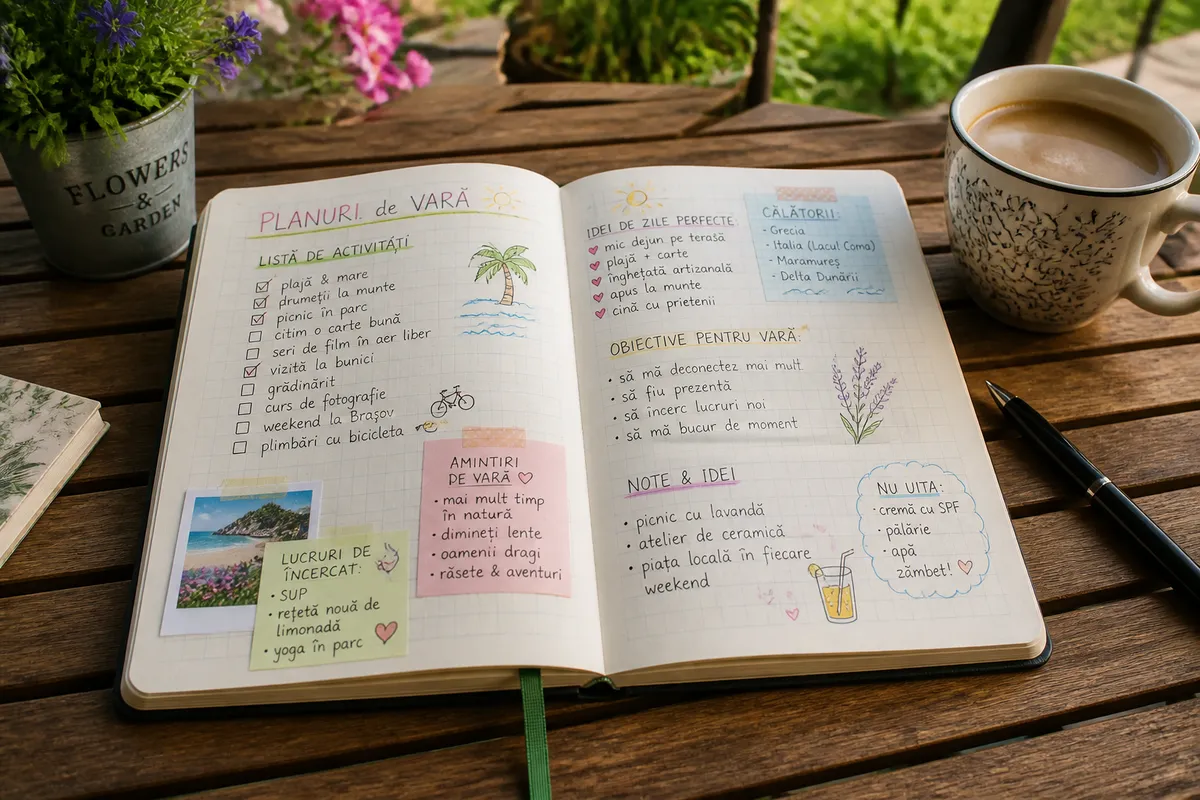 FLOWERS
&
GARDEN
PLANURI de VARĂ
LISTĂ DE ACTIVITĂȚI
plajă & mare
drumeții la munte
picnic în parc
citim o carte bună
seri de film în aer liber
vizită la bunici
grădinărit
curs de fotografie
weekend la Brașov
plimbări cu bicicleta
AMINTIRI
DE VARĂ
• mai mult timp
în natură
• dimineți lente
• oamenii dragi
• râsete & aventuri
LUCRURI DE
ÎNCERCAT:
• SUP
• rețetă nouă de
limonadă
• yoga în parc
IDEI DE ZILE PERFECTE:
mic dejun pe terasă
plajă + carte
înghețată artizanală
apus la munte
cină cu prietenii
CĂLĂTORII:
- Grecia
- Italia (Lacul Como)
- Maramureș
- Delta Dunării
OBIECTIVE PENTRU VARĂ:
• să mă deconectez mai mult
• să fiu prezentă
• să încerc lucruri noi
• să mă bucur de moment
NOTE & IDEI
• picnic cu lavandă
• atelier de ceramică
• piața locală în fiecare
weekend
NU UITA:
• cremă cu SPF
• pălărie
• apă
zâmbet!